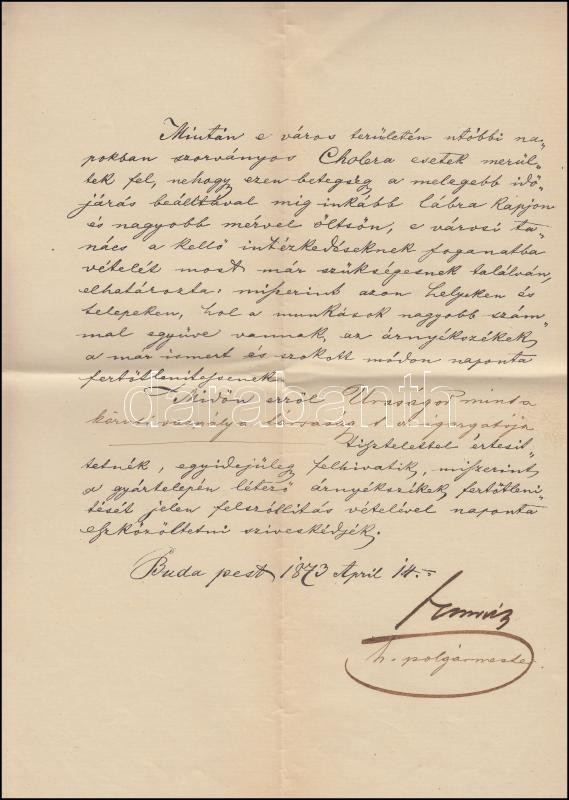 Miután e város területén utóbbi na„
pokban szorványos Cholera esetek merül„
tek fel, nehogy ezen betegség a melegebb idő„
járás beálltával még inkább lábra kapjon
és nagyobb mérvet öltsön, e városi ta„
nács a kellő intézkedéseknek foganatba
vételét most már szükségesnek találván,
elhatározta: miszerint azon helyeken és
telepeken, hol a munkások nagyobb szám„
mal együve vannak, az árnyékszékek
a már ismert és szokott módon naponta
fertőtlenítessenek
darabanth
Midőn erről Uraságod mint a
társaság igazgatója
tisztelettel értesít„
tetnék, egyidejüleg felhivatik, miszerint
a gyártelepén létező árnyékszékek fertőtlení„
tését jelen felszóllitás vételével naponta
eszközöltetni sziveskedjék.
Buda pest 1873 April 14.
h. polgármester